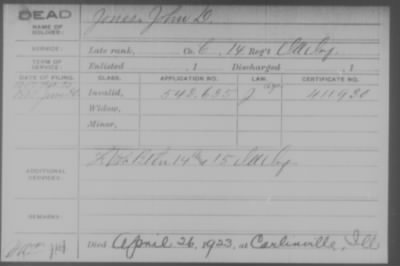 DEAD
NAME OF SOLDIER: Jones, John D.
SERVICE: Late rank, Co. C, 14 Reg't Ill. Inf.
TERM OF SERVICE: Enlisted , 1 Discharged , 1
DATE OF FILING. CLASS. APPLICATION NO. LAW. CERTIFICATE NO.
Invalid, 542.635 J 411920
Widow,
Minor,
ADDITIONAL SERVICES: 14 & 15 Ill. Inf.
REMARKS:
Died April 26, 1923, at Carlinville, Ill